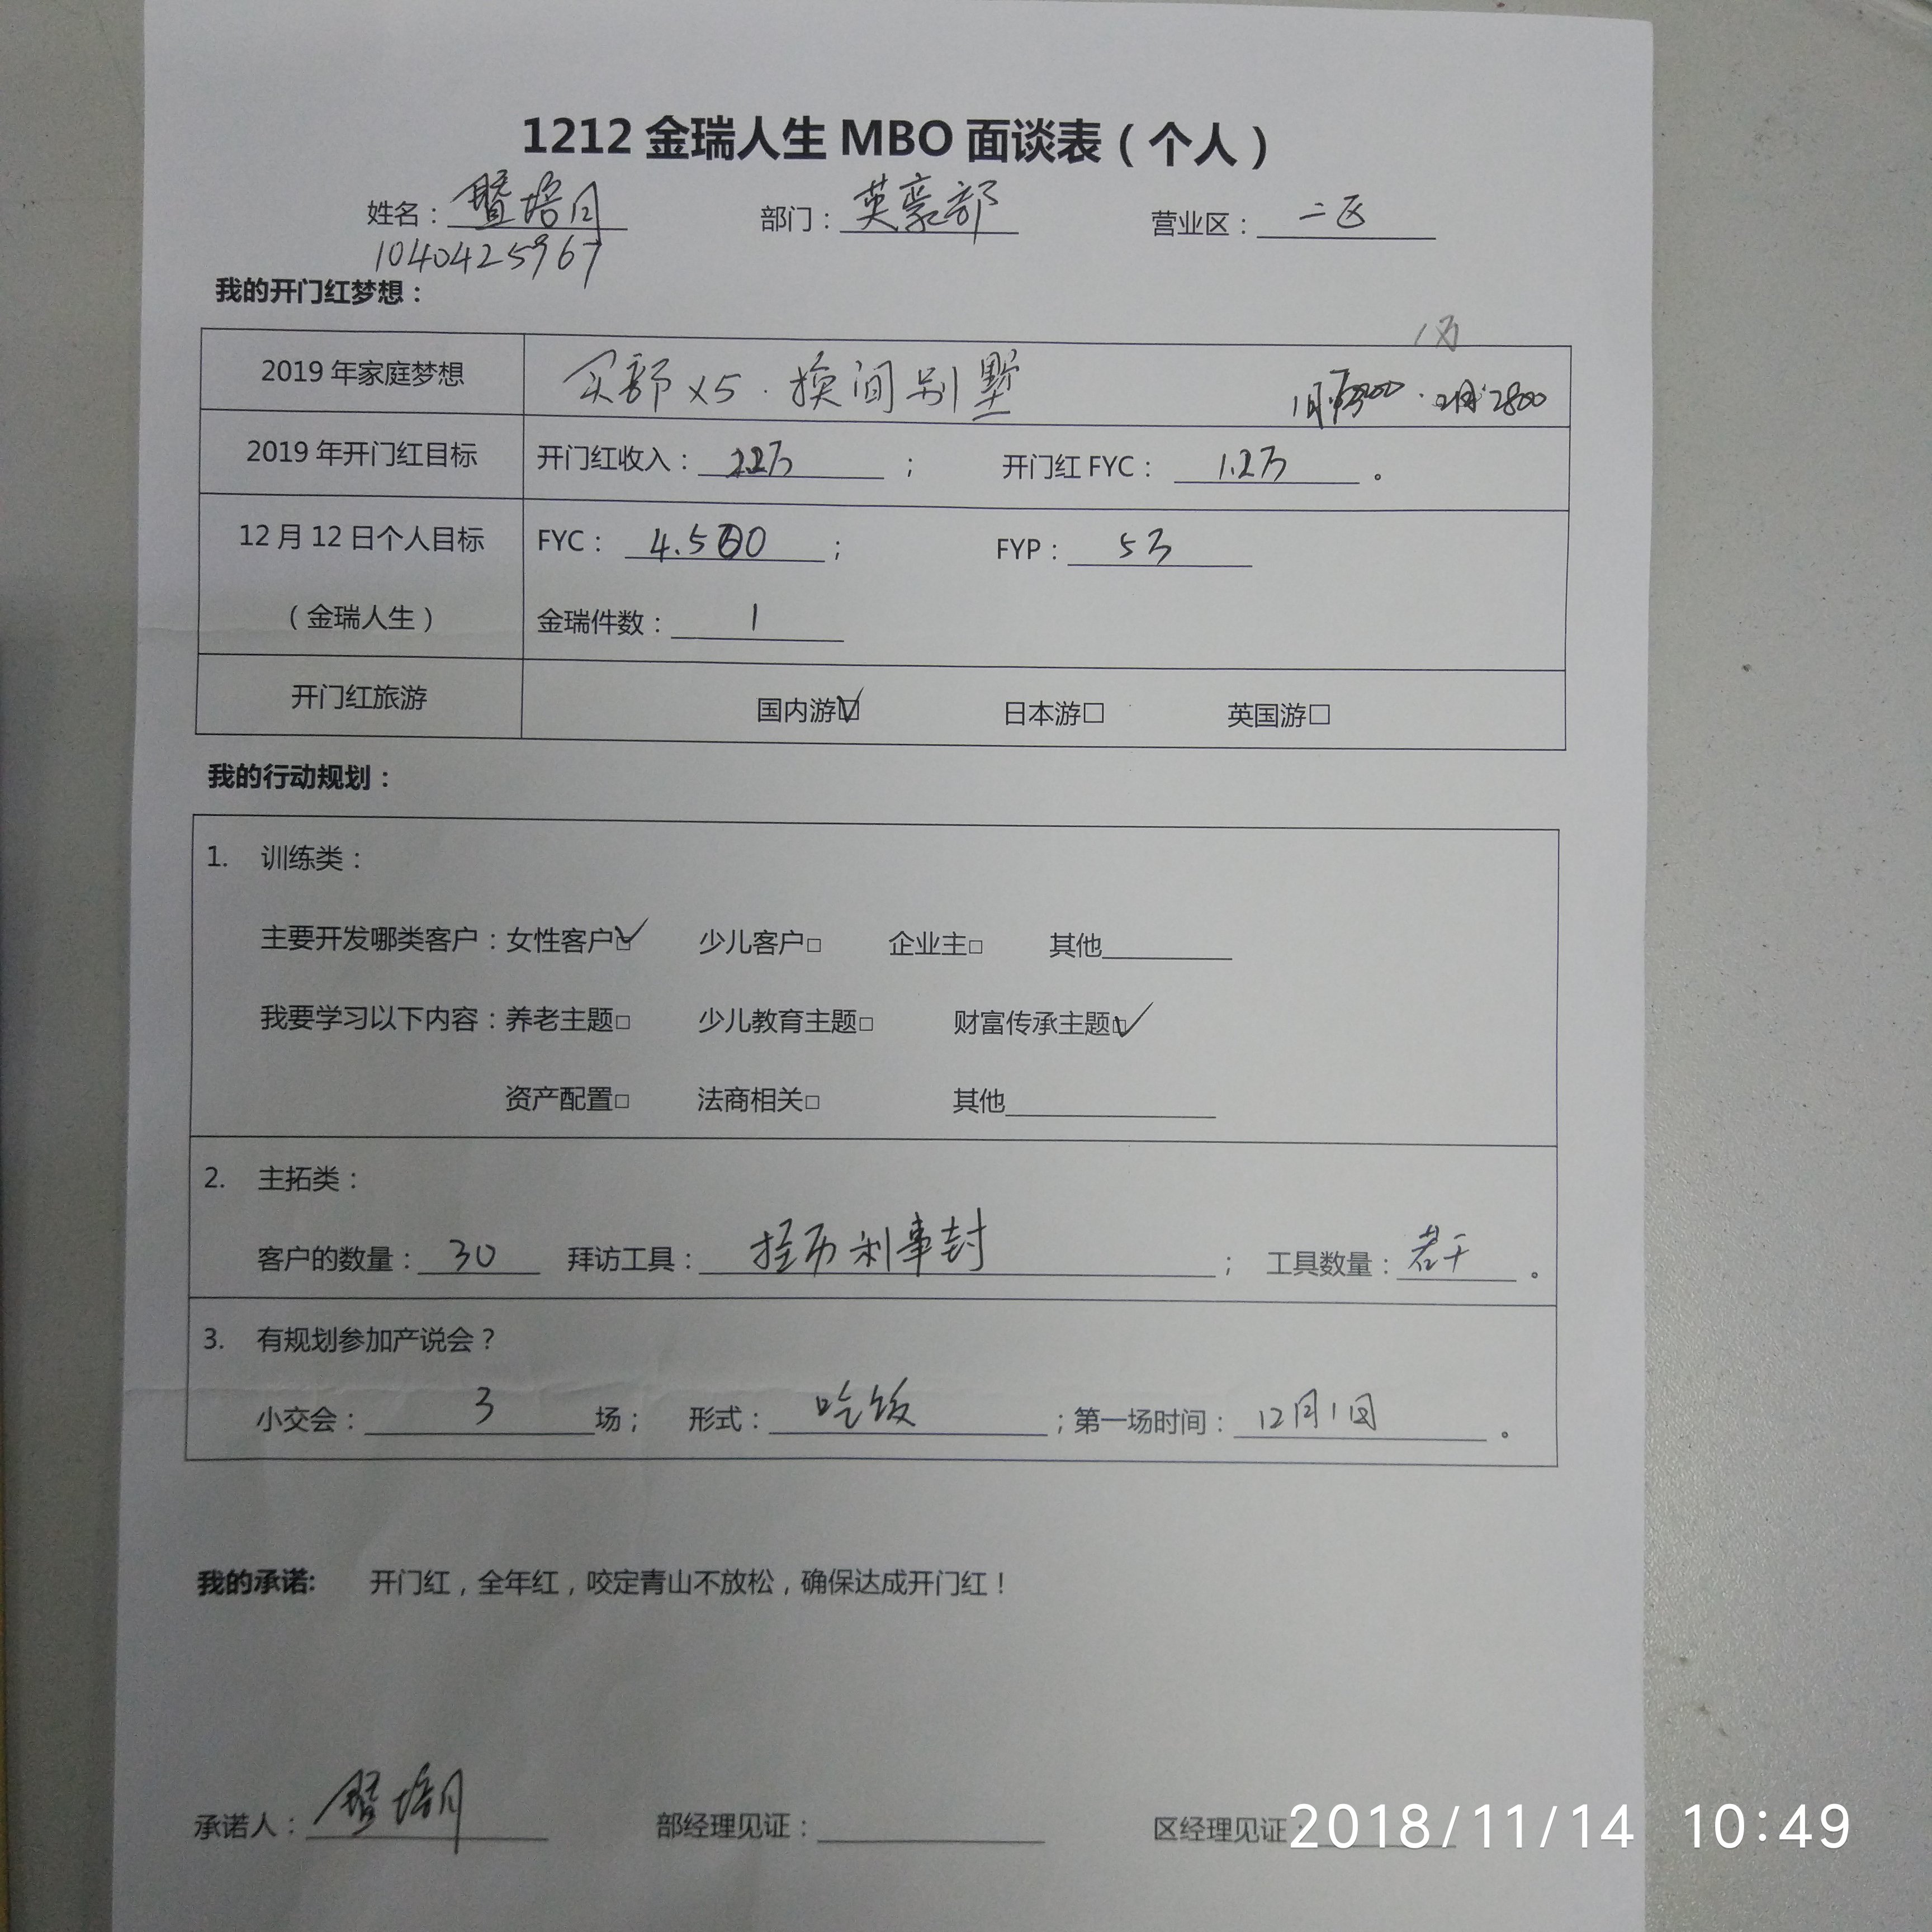 1212 金瑞人生 MBO 面谈表（个人）
姓名：暨培月 部门：英豪部 营业区：二区
1040425967
我的开门红梦想：
1万
2019 年家庭梦想 买部 X5 . 换间别墅 1月 2月 2800
2019 年开门红目标 开门红收入： ； 开门红 FYC： 1.2万 。
12 月 12 日个人目标 FYC： 4.500 ； FYP： 5万
（金瑞人生） 金瑞件数： 1
开门红旅游 国内游☑ 日本游□ 英国游□
我的行动规划：
1. 训练类：
主要开发哪类客户：女性客户☑ 少儿客户□ 企业主□ 其他
我要学习以下内容：养老主题□ 少儿教育主题□ 财富传承主题☑
资产配置□ 法商相关□ 其他
2. 主拓类：
客户的数量： 30 拜访工具： 挂历 利事封 ； 工具数量：若干 。
3. 有规划参加产说会？
小交会： 3 场； 形式： 吃饭 ；第一场时间： 12月1日 。
我的承诺: 开门红，全年红，咬定青山不放松，确保达成开门红！
承诺人：暨培月 部经理见证： 区经理见证：
2018/11/14 10:49